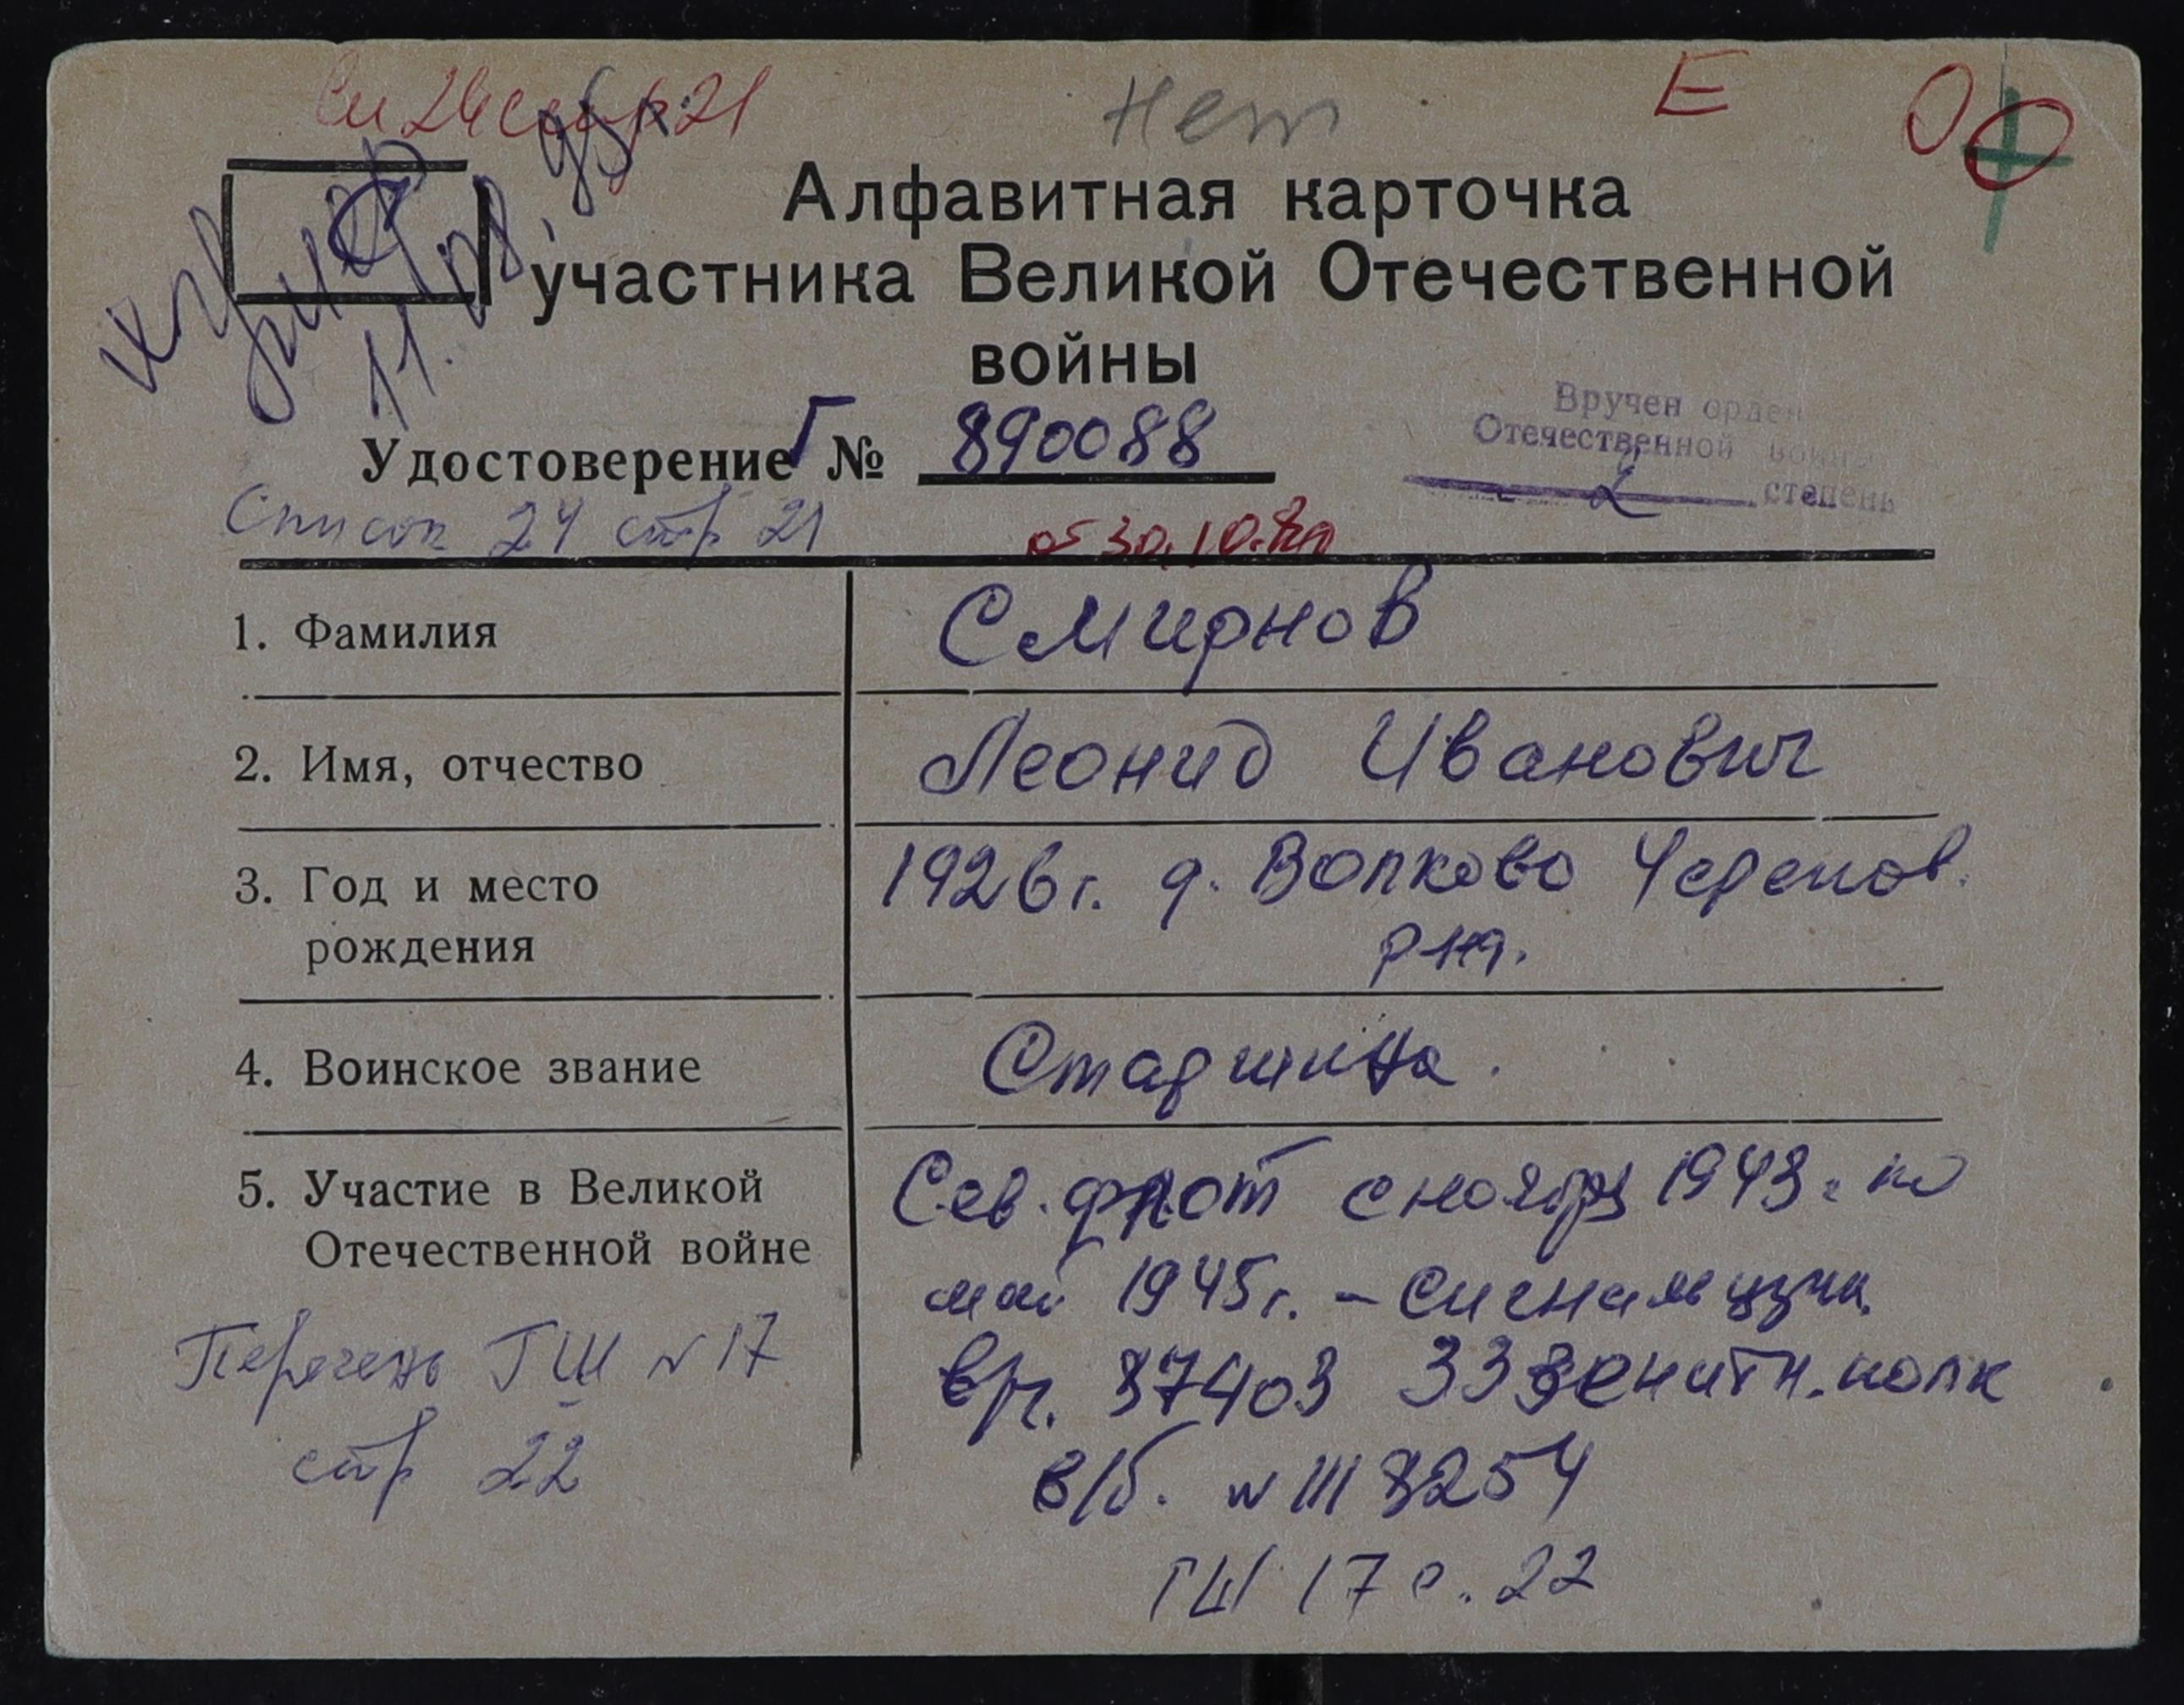 Нет
Е
Алфавитная карточка
участника Великой Отечественной
войны
11.08.95г.
Вручен орден
Отечественной войны
2 степень
Удостоверение Г № 890088
Список 24 стр 21
от 30.10.80
1. Фамилия
Смирнов
2. Имя, отчество
Леонид Иванович
3. Год и место
рождения
1926г. д. Волково Черепов.
р-на.
4. Воинское звание
Старшина.
5. Участие в Великой
Отечественной войне
Сев. флот с ноября 1943г по
май 1945г. – сигнальщик
вр. 87403 33 зенитн. полк
в/б. № III 8254
ГШ 17 с. 22
Перечень ГШ № 17
стр 22